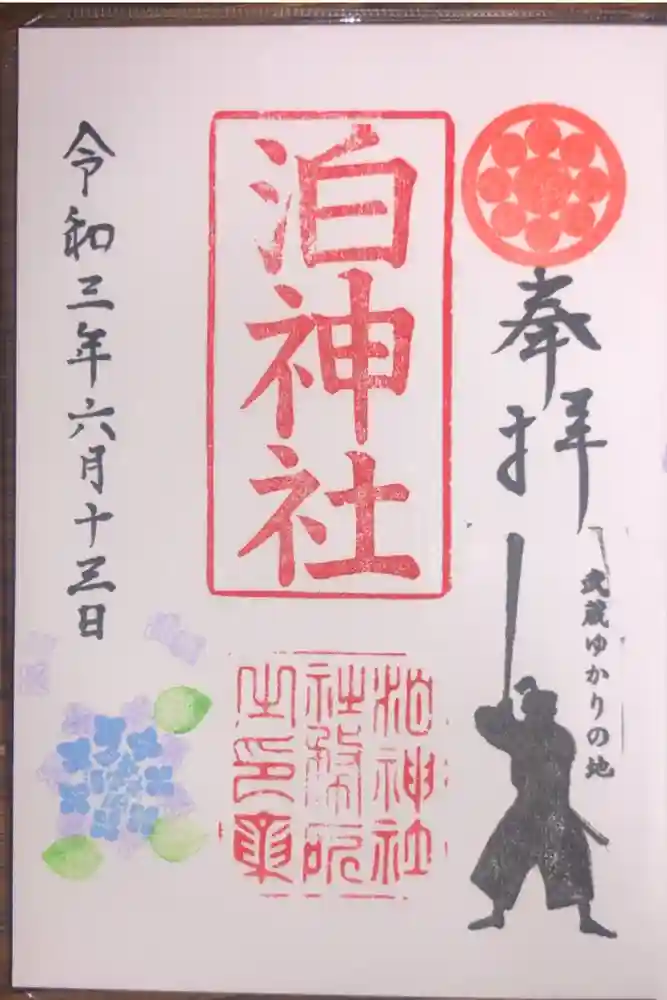 奉拝
武蔵ゆかりの地
泊神社
泊神社
社務所
令和三年六月十三日